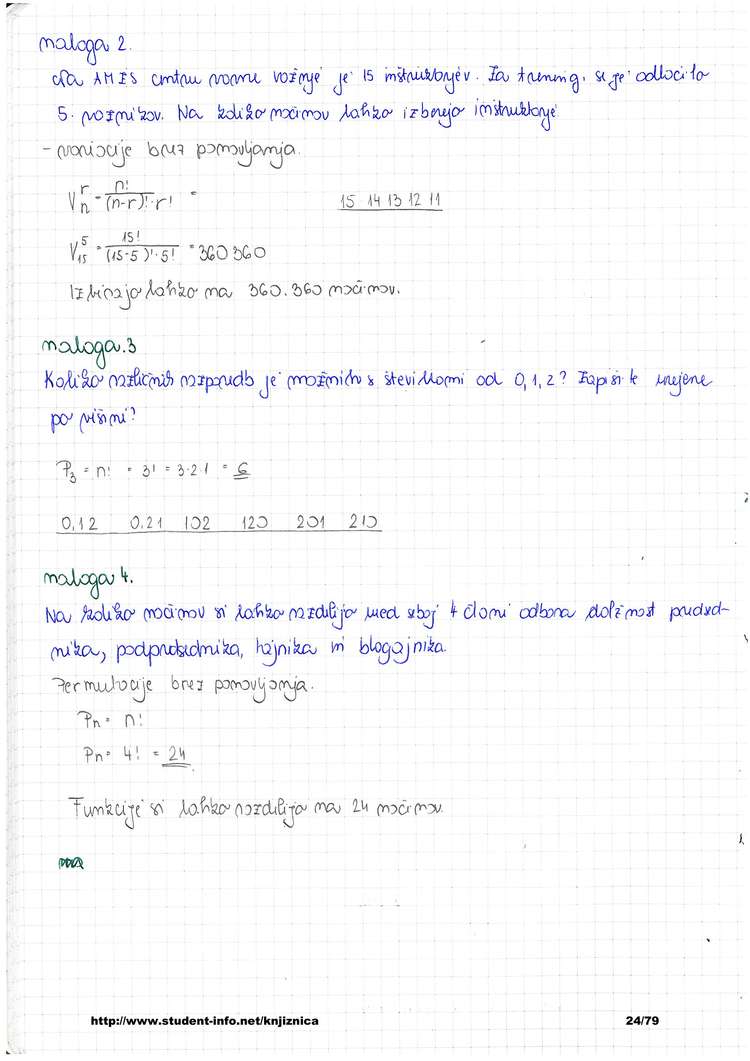 naloga 2.
Na AMZS centru varne vožnje je 15 inštruktorjev. Za trening, se je odločilo
5. voznikov. Na koliko načinov lahko izberejo inštruktorje
- variacije brez ponavljanja.
V_n^r = n! / (n-r)! · r! =
15 14 13 12 11
V_15^5 = 15! / (15-5)! · 5! = 360360
Izbirajo lahko na 360.360 načinov.
naloga.3
Koliko različnih razporedb je možnih s številkami od 0, 1, 2? Zapiši te urejene
po višini?
P_3 = n! = 3! = 3·2·1 = 6
0,12 0.21 102 120 201 210
naloga 4.
Na koliko načinov si lahko razdelijo med seboj 4 člani odbora dolžnost predsed-
nika, podpredsednika, tajnika in blagajnika.
Permutacije brez ponavljanja.
Pn = n!
Pn = 4! = 24
Funkcije si lahko razdelijo na 24 načinov.
http://www.student-info.net/knjiznica
24/79